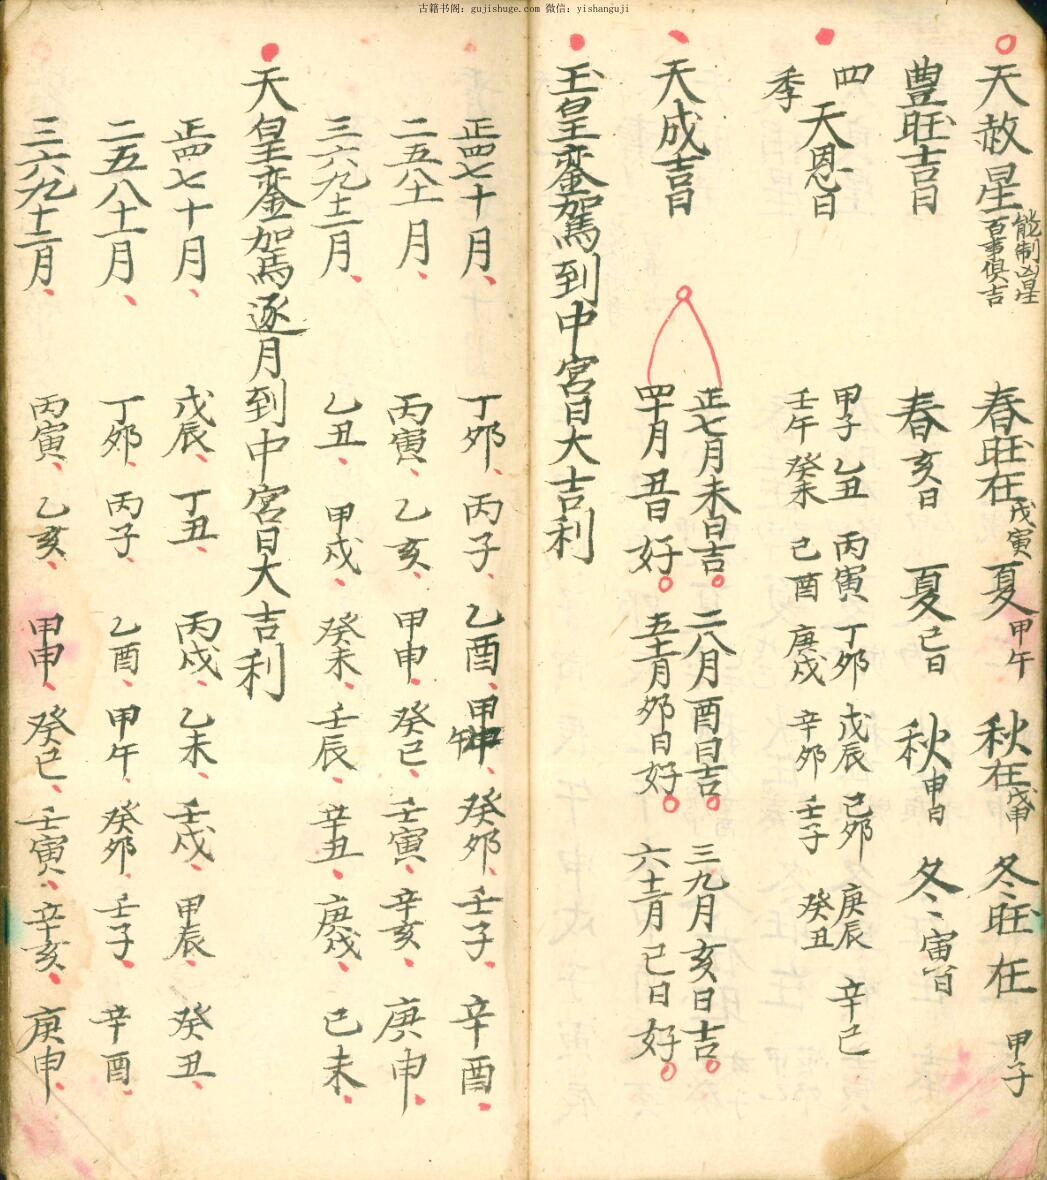 古籍书阁：gujishuge.com 微信：yishanguji
天赦星 能制凶星 百事俱吉 春旺在戊寅 夏甲午 秋在戊申 冬旺在甲子
豊旺吉日 春亥日 夏巳日 秋申日 冬寅日
四季天恩日 甲子 乙丑 丙寅 丁卯 戊辰 己卯 庚辰 辛巳
壬午 癸未 己酉 庚戌 辛卯 壬子 癸丑
天成吉日 正七月未日吉 二八月酉日吉 三九月亥日吉
四十月丑日好 五十一月卯日好 六十二月巳日好
玉皇銮駕到中宮日大吉利
正四七十月 丁卯 丙子 乙酉 甲午 癸卯 壬子 辛酉
二五八十一月 丙寅 乙亥 甲申 癸巳 壬寅 辛亥 庚申
三六九十二月 乙丑 甲戌 癸未 壬辰 辛丑 庚戌 己未
天皇銮駕逐月到中宮日大吉利
正四七十月 戊辰 丁丑 丙戌 乙未 壬戌 甲辰 癸丑
二五八十一月 丁卯 丙子 乙酉 甲午 癸卯 壬子 辛酉
三六九十二月 丙寅 乙亥 甲申 癸巳 壬寅 辛亥 庚申